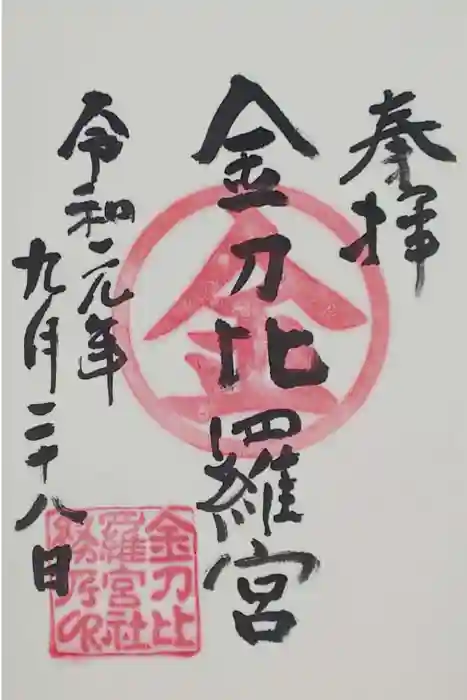 奉拝
金刀比羅宮
令和元年
九月二十八日
金
金刀比
羅宮社
務所印